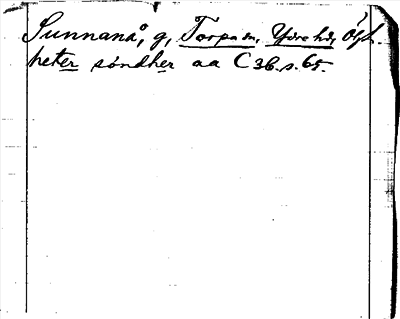 Sunnanå, g, Torpa sn, Ydre hd, Ögl.
heter söndher aa C 36. s. 65.